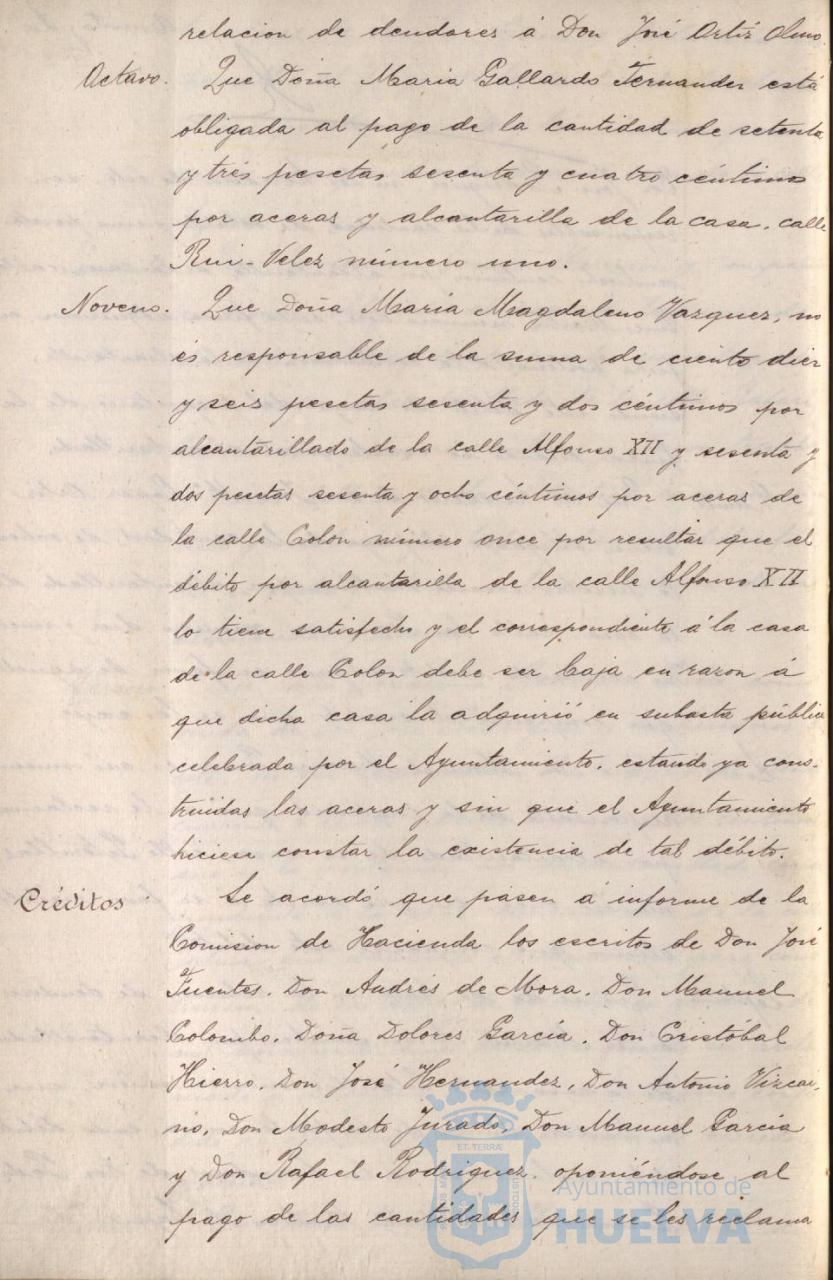 relacion de deudores á Don José Ortíz Olmo
Octavo. Que Doña Maria Gallardo Fernandez está
obligada al pago de la cantidad de setenta
y trés pesetas sesenta y cuatro céntimos
por aceras y alcantarilla de la casa, calle
Rui-Velez número uno.
Noveno. Que Doña Maria Magdaleno Vazquez, no
és responsable de la suma de ciento diez
y seis pesetas sesenta y dos céntimos por
alcantarillado de la calle Alfonso XII y sesenta y
dos pesetas sesenta y ocho céntimos por aceras de
la calle Colon número once por resultar que el
débito por alcantarilla de la calle Alfonso XII
lo tiene satisfecho y el correspondiente á la casa
de la calle Colon debe ser baja en razon á
que dicha casa la adquirió en subasta pública
celebrada por el Ayuntamiento, estando ya cons-
truidas las aceras y sin que el Ayuntamiento
hiciese constar la existencia de tal débito.
Créditos Se acordó que pasen á informe de la
Comision de Hacienda los escritos de Don José
Fuentes, Don Andrés de Mora, Don Manuel
Colombo, Doña Dolores García, Don Cristóbal
Hierro, Don José Hernandez, Don Antonio Vizcai-
no, Don Modesto Jurado, Don Manuel García
y Don Rafael Rodriguez, oponiéndose al
pago de las cantidades que se les reclama
ET TERRÆ
Ayuntamiento de
HUELVA